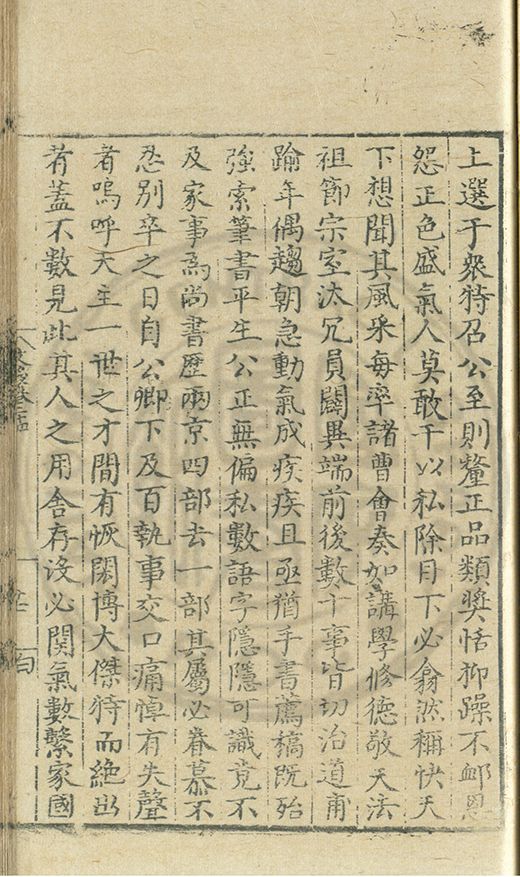 上選于衆特召公至則釐正品類奬恬抑躁不䘏恩
怨正色盛氣人莫敢干以私除目下必翕然稱快天
下想聞其風采每率諸曹會奏如講學修德敬天法
祖節宗室汰冗員闢異端前後數十事皆切治道甫
踰年偶趨朝急動氣成疾疾且亟猶手書薦稿既殆
強索筆書平生公正無偏私數語字隱隱可識竟不
及家事焉尚書歷兩京四部去一部其屬必眷慕不
忍別卒之日自公卿下及百執事交口痛悼有失聲
者嗚呼天主一世之才間有恢閎博大傑特而絶出
者蓋不數見此其人之用舍存沒必関氣數繫家國